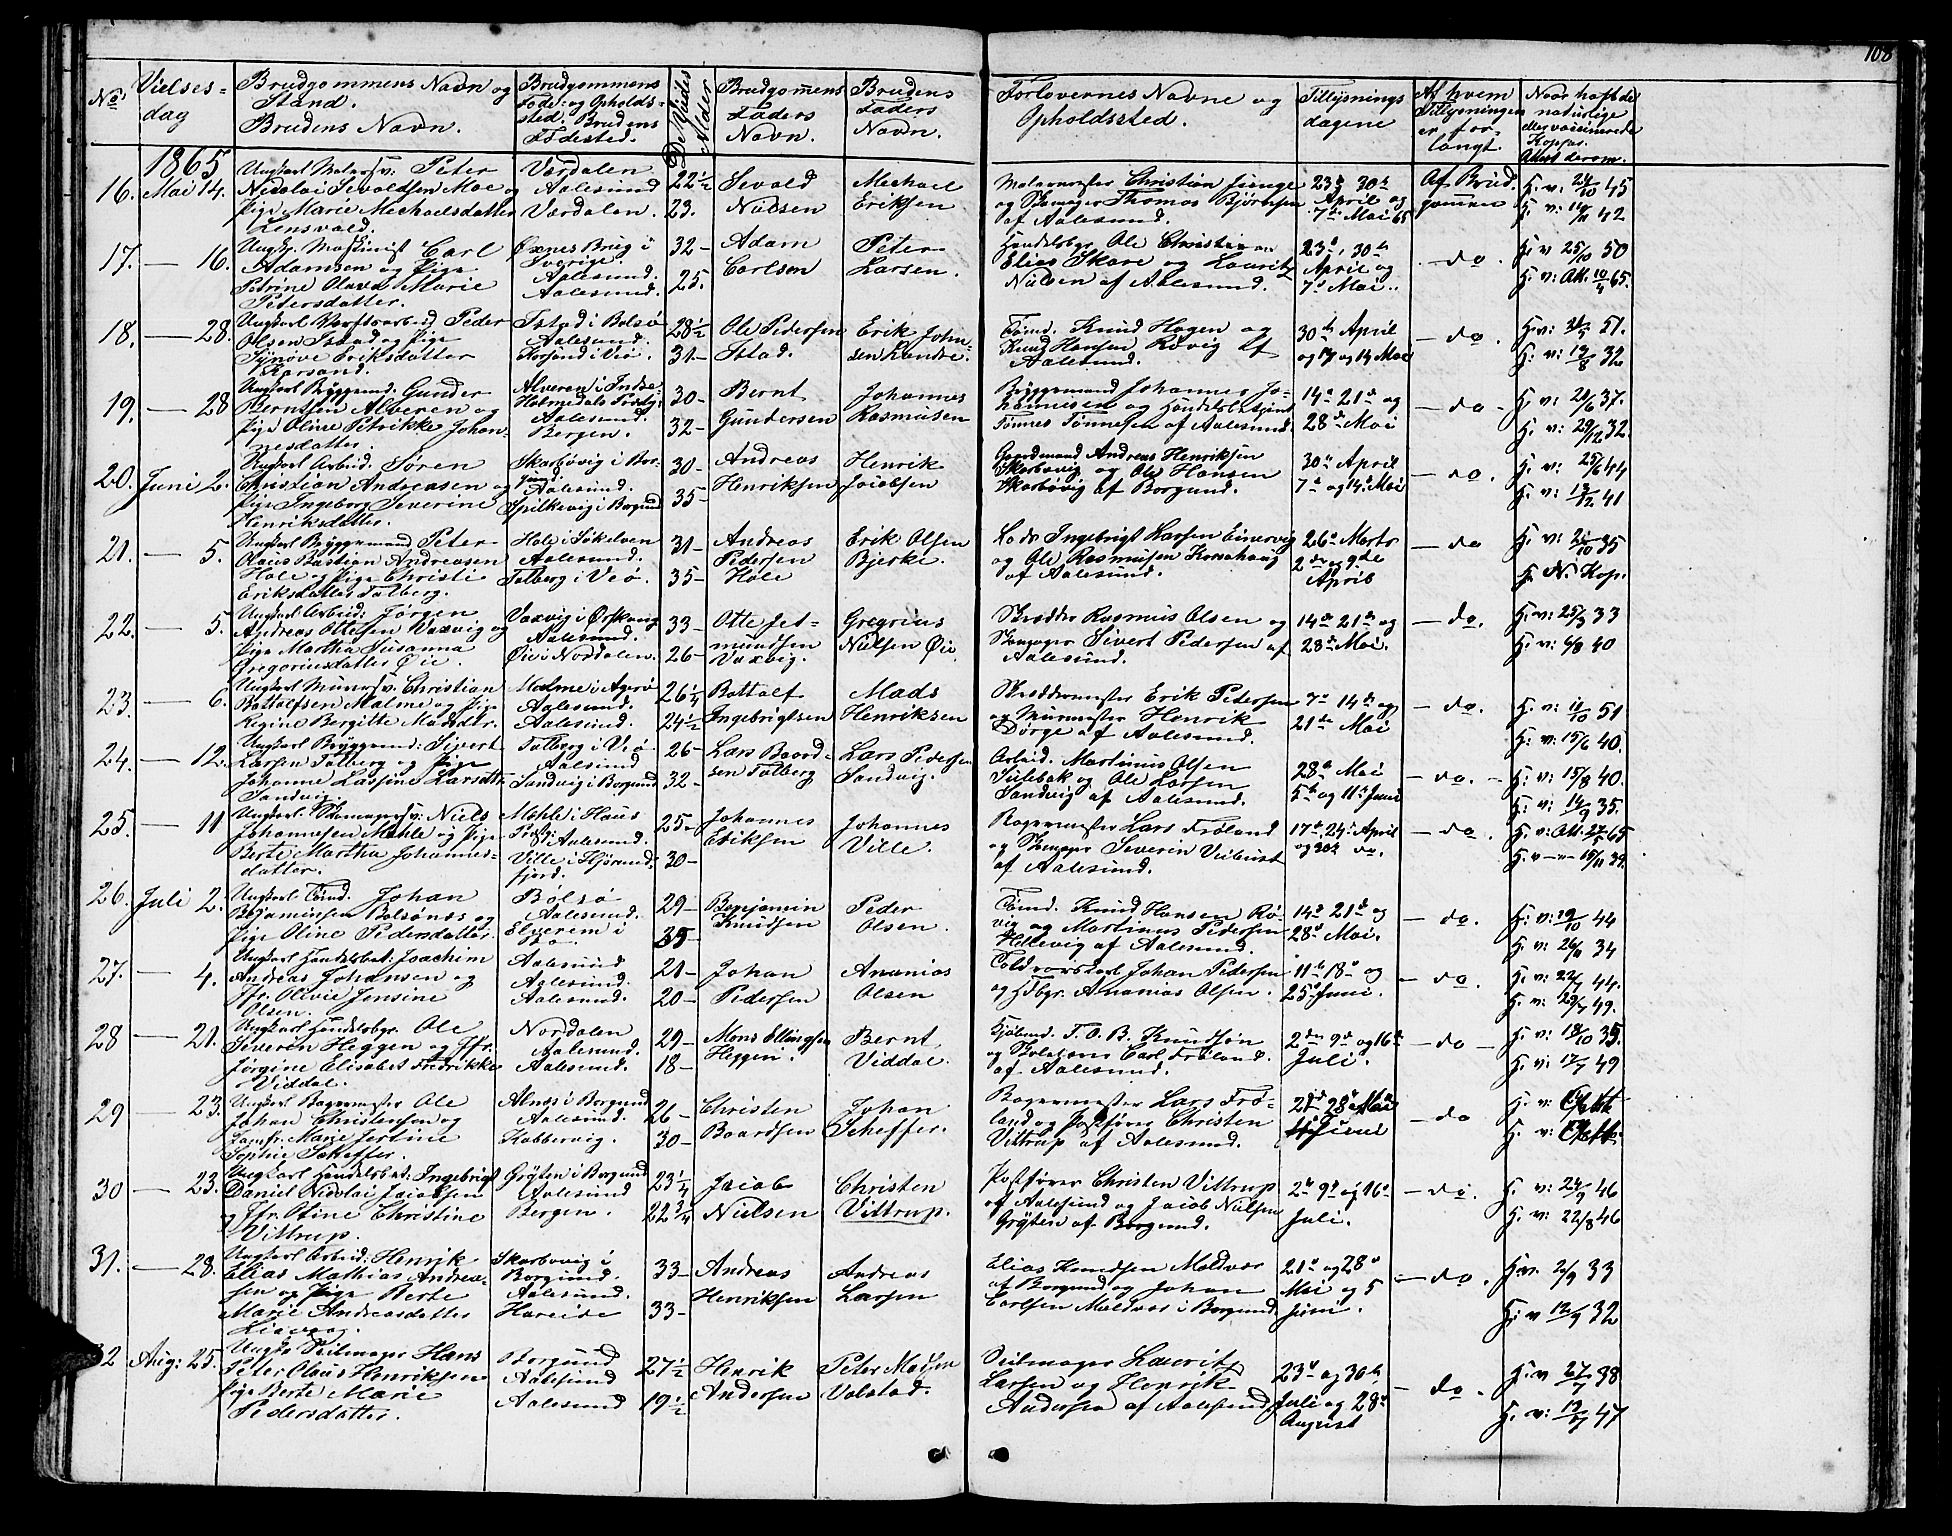 108
No
Vielses-
dag
Brudgommens Navn og
Stand.
Brudens Navn.
Brudgommens
Føde- og Opholds-
sted. Brudens
Fødested.
De Viedes
Alder
Brudgomens
Faders
Navn.
Brudens
Faders
Navn.
Forlovernes Navne og
Opholdssted.
Tillysnings
dagene
Af hvem
Tillysningen
er for-
langt.
Naar havt de
naturlige
eller vaccinerede
Kopper.
Attest derom.
1865
16. Mai 14.
Ungkarl Malersv. Peter
Nicolai Sevaldsen Moe og
Pige Marie Michaelsdatter
Værdalen
Aalesund
Værdalen.
22½
23.
Sevald
Nielsen
Michael
Eriksen
Malermester Christian Junge
og Skomager Thomas Bjørnsen
af Aalesund.
23de 30te
April og
7de Mai 65
Af Brud-
gommen
H. v: 24/10 45
H. v: 11/11 42
17. — 16.
Ungk. Maskinist Carl
Adamsen og Pige
Petrine Olava Marie
Petersdatter.
Øxnes Brug i
Sverige.
Aalesund.
Aalesund.
32 -
25.
Adam
Carlsen
Peter
Larsen.
Handelsbgr. Ole Christian
Elias Skare og Lauritz
Nielsen af Aalesund.
23de, 30te
April og
7de Mai.
- do.
H. v 25/10 50
H. v: Att. 10/4 65.
18. — 28.
Ungkarl Værftsarbeid. Peder
Olsen Istad og Pige
Synøve Eriksdatter
Istad i Bolsø
Aalesund.
28½
31 -
Ole Pedersen
Istad.
Erik John-
sen
Tømd. Knud Hagen og
Knud Hansen Røvig af
Aalesund.
30te April
og 7de og 14 Mai
- do.
H. v: 51.
H. v: 13/8 32
19. — 28
Ungkarl Bryggemd. Gunder
Berntsen Alveren og
Pige Oline Petrikke Johan-
nesdatter.
Alveren i Indre
Holmedals Præstgj.
Aalesund.
Bergen.
30 -
32 -
Bernt
Gundersen
Johannes
Rasmusen
Bryggemand Johannes Jo-
hannesen og Handelsbetjent
Tønnes Tønnesen af Aalesund.
14de 21de og
28de Mai
- do -
H. v: 37.
H. v: 29/12 32.
20. Juni 2.
Ungkarl Arbeid. Søren
Cristian Andreasen og
Pige Ingeborg Severine
Henriksdatter.
Skarbøvig i Bor-
gund.
Aalesund.
Spilkevig i Borgund
30 -
35 -
Andreas
Henriksen
Henrik
Jacobsen
Gaardmand Andreas Henriksen
Skarbøvig og Ole Hansen
Skarbøvig af Borgund.
30te April
7de og 14de Mai
- do.
H. v: 25/6 44
H. v: 13/12 41
21. — 5.
Ungkarl Bryggemand Peter
Claus Bastian Andreasen
Hole og Pige Christi
Eriksdatter Talberg.
Hole i Søkelven
Aalesund.
Talberg i Veø.
31 -
35 -
Andreas
Pedersen
Hole
Erik Olsen
Bjerke.
Lods Ingebrigt Larsen
og Ole Rasmusen
af Aalesund.
26de Marts
2den og 9de
April
- do
H. v: 35
H. N. Kop.
22. — 5.
Ungkarl Arbeid: Jørgen
Andreas Ottesen Vaxvig og
Pige Martha Susanna
Gregoriusdatter Øie.
Vaxvig i Ørskoug
Aalesund.
Øie i Nordalen.
33 -
26 -
Otte Jet-
mundsen
Vaxvig.
Gregorius
Nielsen Øie.
Skrædder Rasmus Olsen og
Skomager Sivert Pedersen af
Aalesund.
14de 21de og
28de Mai.
- do.
H. v: 25/3 33
H. v: 6/8 40
23. — 6.
Ungkarl Murersv. Christian
Bottolfsen Malme og Pige
Regine Bergitte Madsdtr.
Malme i Agerø
Aalesund.
Aalesund.
26¼
24½
Bottolf
Ingebrigtsen
Mads
Henriksen
Skræddermester Erik Pedersen
og Murmester Henrik
Dørge af Aalesund.
7de 14de og
21de Mai
- do.
H. v: 11/10 51
H. v: 15/6 40.
24. — 12.
Ungkarl Bryggemd: Sivert
Larsen Talberg og Pige
Johanne Larsine Larsdtr.
Sandvig.
Talberg i Veø
Aalesund
Sandvig i Borgund
26 -
32 -
Lars Baard-
sen Talberg
Lars Pedersen
Sandvig.
Arbeid. Martinus Olsen
og Ole Larsen
Sandvig af Aalesund.
28de Mai
5te og 11te Juni
- do. -
H. v: 15/8 40.
H. v: 14/9 35.
25. — 11
Ungkarl Skomagersv: Niels
Johannesen Mehle og Pige
Berte Martha Johannes-
datter.
Mehle i Haus
Præstgj.
Aalesund.
Ville i Hjørund-
fjord.
25 -
30 -
Johannes
Eriksen
Johannes
Ville.
Bagermester Lars Frøland
og Skomager Severin Veibust
af Aalesund.
17de, 24de April
og 30te do.
- do.
H. v: Att. 65
H. v 15/11 39.
26. Juli 2.
Ungkarl Tømd. Johan
Benjaminsen Bolsønæs og
Pige Oline Pedersdatter.
Bolsø
Aalesund.
29 -
35 -
Benjamin
Knudsen
Peder
Olsen.
Tømd. Knud Hansen Rø-
vig og Martinus Pedersen
Hellevig af Aalesund.
14de 21de og
28de Mai.
- do.
H. v: 19/10 44
H. v: 26/11 34
27. — 4.
Ungkarl Handelsbet: Joachim
Andreas Johansen og
Jfr. Olivie Jensine
Olsen.
Aalesund
Aalesund.
Aalesund.
21 -
20 -
Johan
Pedersen
Ananias
Olsen
Johan Pedersen
og Hdbgr. Ananias Olsen.
11te 18de og
25de Juni.
- do.
H. v: 22/7 44.
H. v: 29/7 49.
28 — 21.
Ungkarl Handelsbgr. Ole
Severin Heggen og Jfr.
Jørgine Elisabet Fredrikke
Viddal.
Nordalen
Aalesund.
Aalesund.
29 -
18 -
Mons Ellingsen
Heggen.
Bernt
Viddal.
Kjøbmd. T. O. B. Knudsøn
og Carl Frøland.
af Aalesund.
2den 9de og 16de
Juli.
- do -
H. v: 18/10 35.
H. v: 17/7 49
29 — 23.
Ungkarl Bagermester Ole
Johan Christensen og
Jomfr. Marie Jertine
Sophie Scheffer.
Alnæs i Borgund
Aalesund.
Kobbervig.
26 -
30 -
Christen
Baardsen
Johan
Scheffer.
Bagermester Lars Frø-
land og Postfører Christen
Vittrup af Aalesund.
21de 28de Mai
Juni
- do
H. v:
H. v:
30 — 23.
Ungkarl Handelsbet: Ingebrigt
Daniel Nicolai Jacobsen
og Jfr. Stine Christine
Vittrup.
Grøten i Borgund
Aalesund
Bergen.
23¼
22¾
Jacob
Nielsen
Christen
Vittrup.
Postfører Christen Vittrup
af Aalesund og Jacob Nielsen
Grøten af Borgund.
2de 9de og 16de
Juli.
- do.
H. v: 24/9 46
H. v: 22/8 46
31. — 28.
Ungkarl Arbeid: Henrik
Elias Mathias Andrea-
sen og Pige Berte
Marie Andreasdatter
Liavaag.
Skarbøvig i
Borgund.
Aalesund.
Hareide
33 -
33 -
Andreas
Henriksen
Andreas
Larsen
Elias Knudsen Moldvær
af Borgund og Johan
Carlsen Moldvær i Borgund.
21de og 28de
Mai og 5
Juni.
- do.
H. v. 33
H. v 12/9 32
32 Aug: 25.
Ungk. Seilmager Hans
Peter Olaus Henriksen
Pige Berte Marie
Pedersdatter.
Borgund
Aalesund
Aalesund
27½
19½
Henrik
Andersen
Peter Madsen
Valstad.
Seilmager Lauritz
Larsen og Henrik
Andersen af Aalesund
23de og 30te
Juli og 28de
August
- do.
H. v 27/7 38
H. v: 47